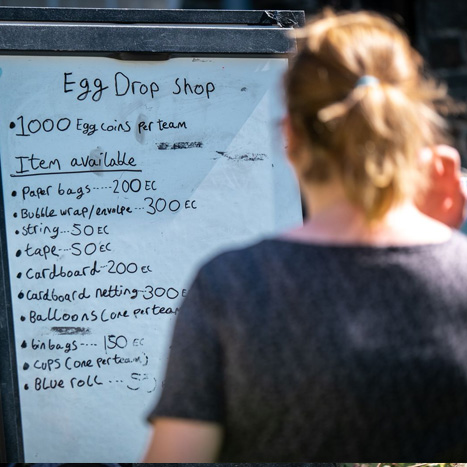 Egg Drop Shop
• 1000 Egg coins per team
Item available
• Paper bags-----200 EC
• Bubble wrap/envolpe---300 EC
• String---50 EC
• tape---50 EC
• Cardboard-200 EC
• Cardboard netting-300 E
• Balloons (one per team
• binbags---- 150 EC
• CUPS (one per team)
• Blue roll ---